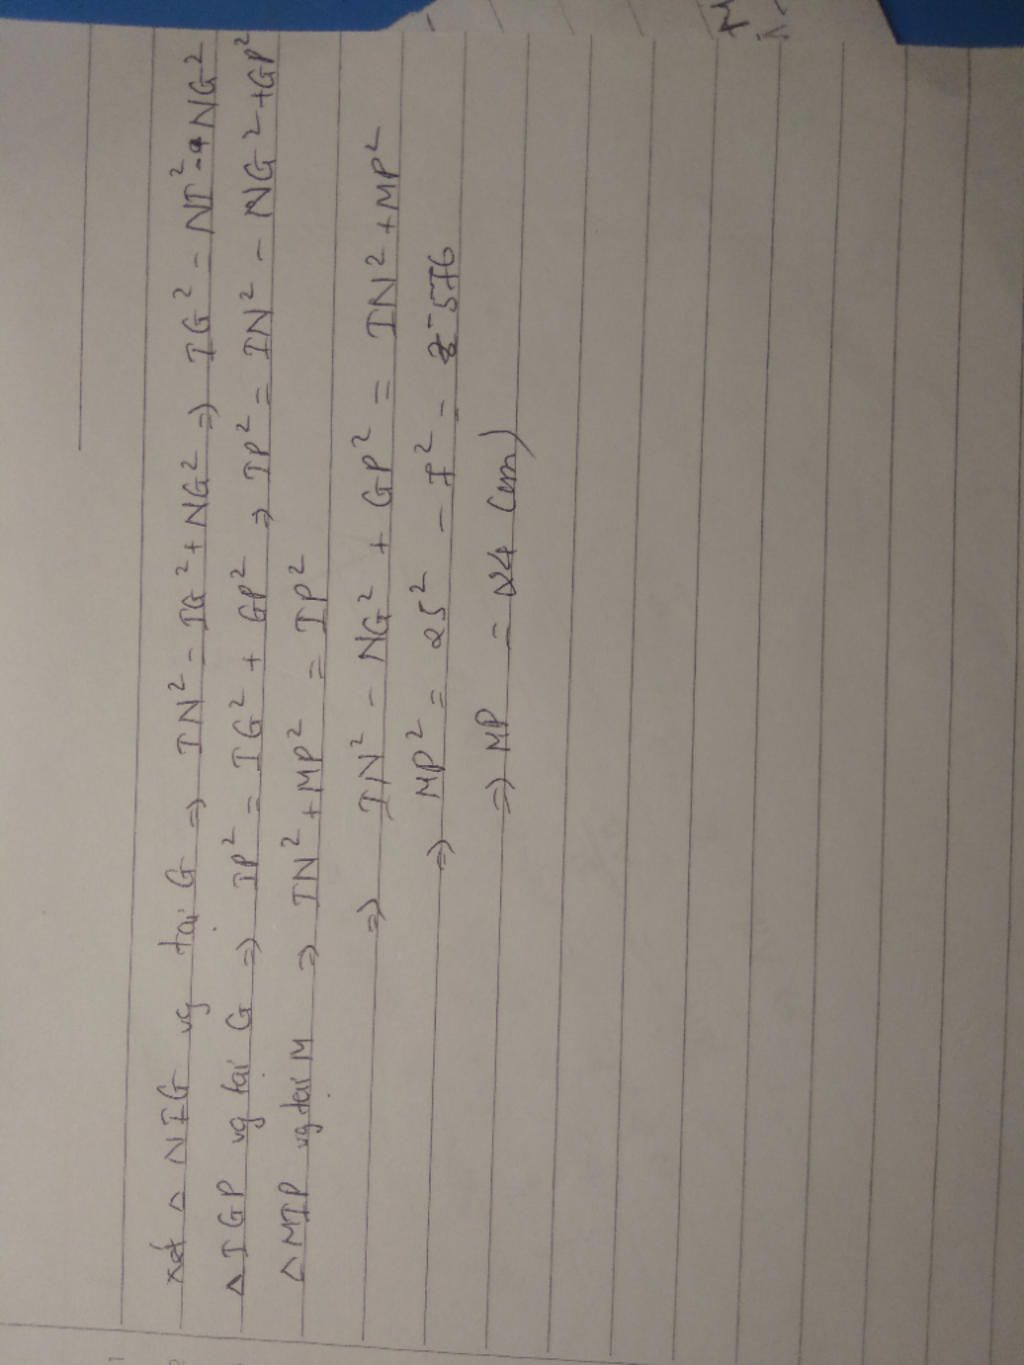 xét △ NIG vg tại G ⇒ IN² = IG² + NG² ⇒ IG² = NI² - NG²
△ IGP vg tại G ⇒ IP² = IG² + GP² ⇒ IP² = IN² - NG² + GP²
△ MIP vg tại M ⇒ IN² + MP² = IP²
⇒ IN² - NG² + GP² = IN² + MP²
⇒ MP² = 25² - 7² = 576
⇒ MP = 24 (cm)